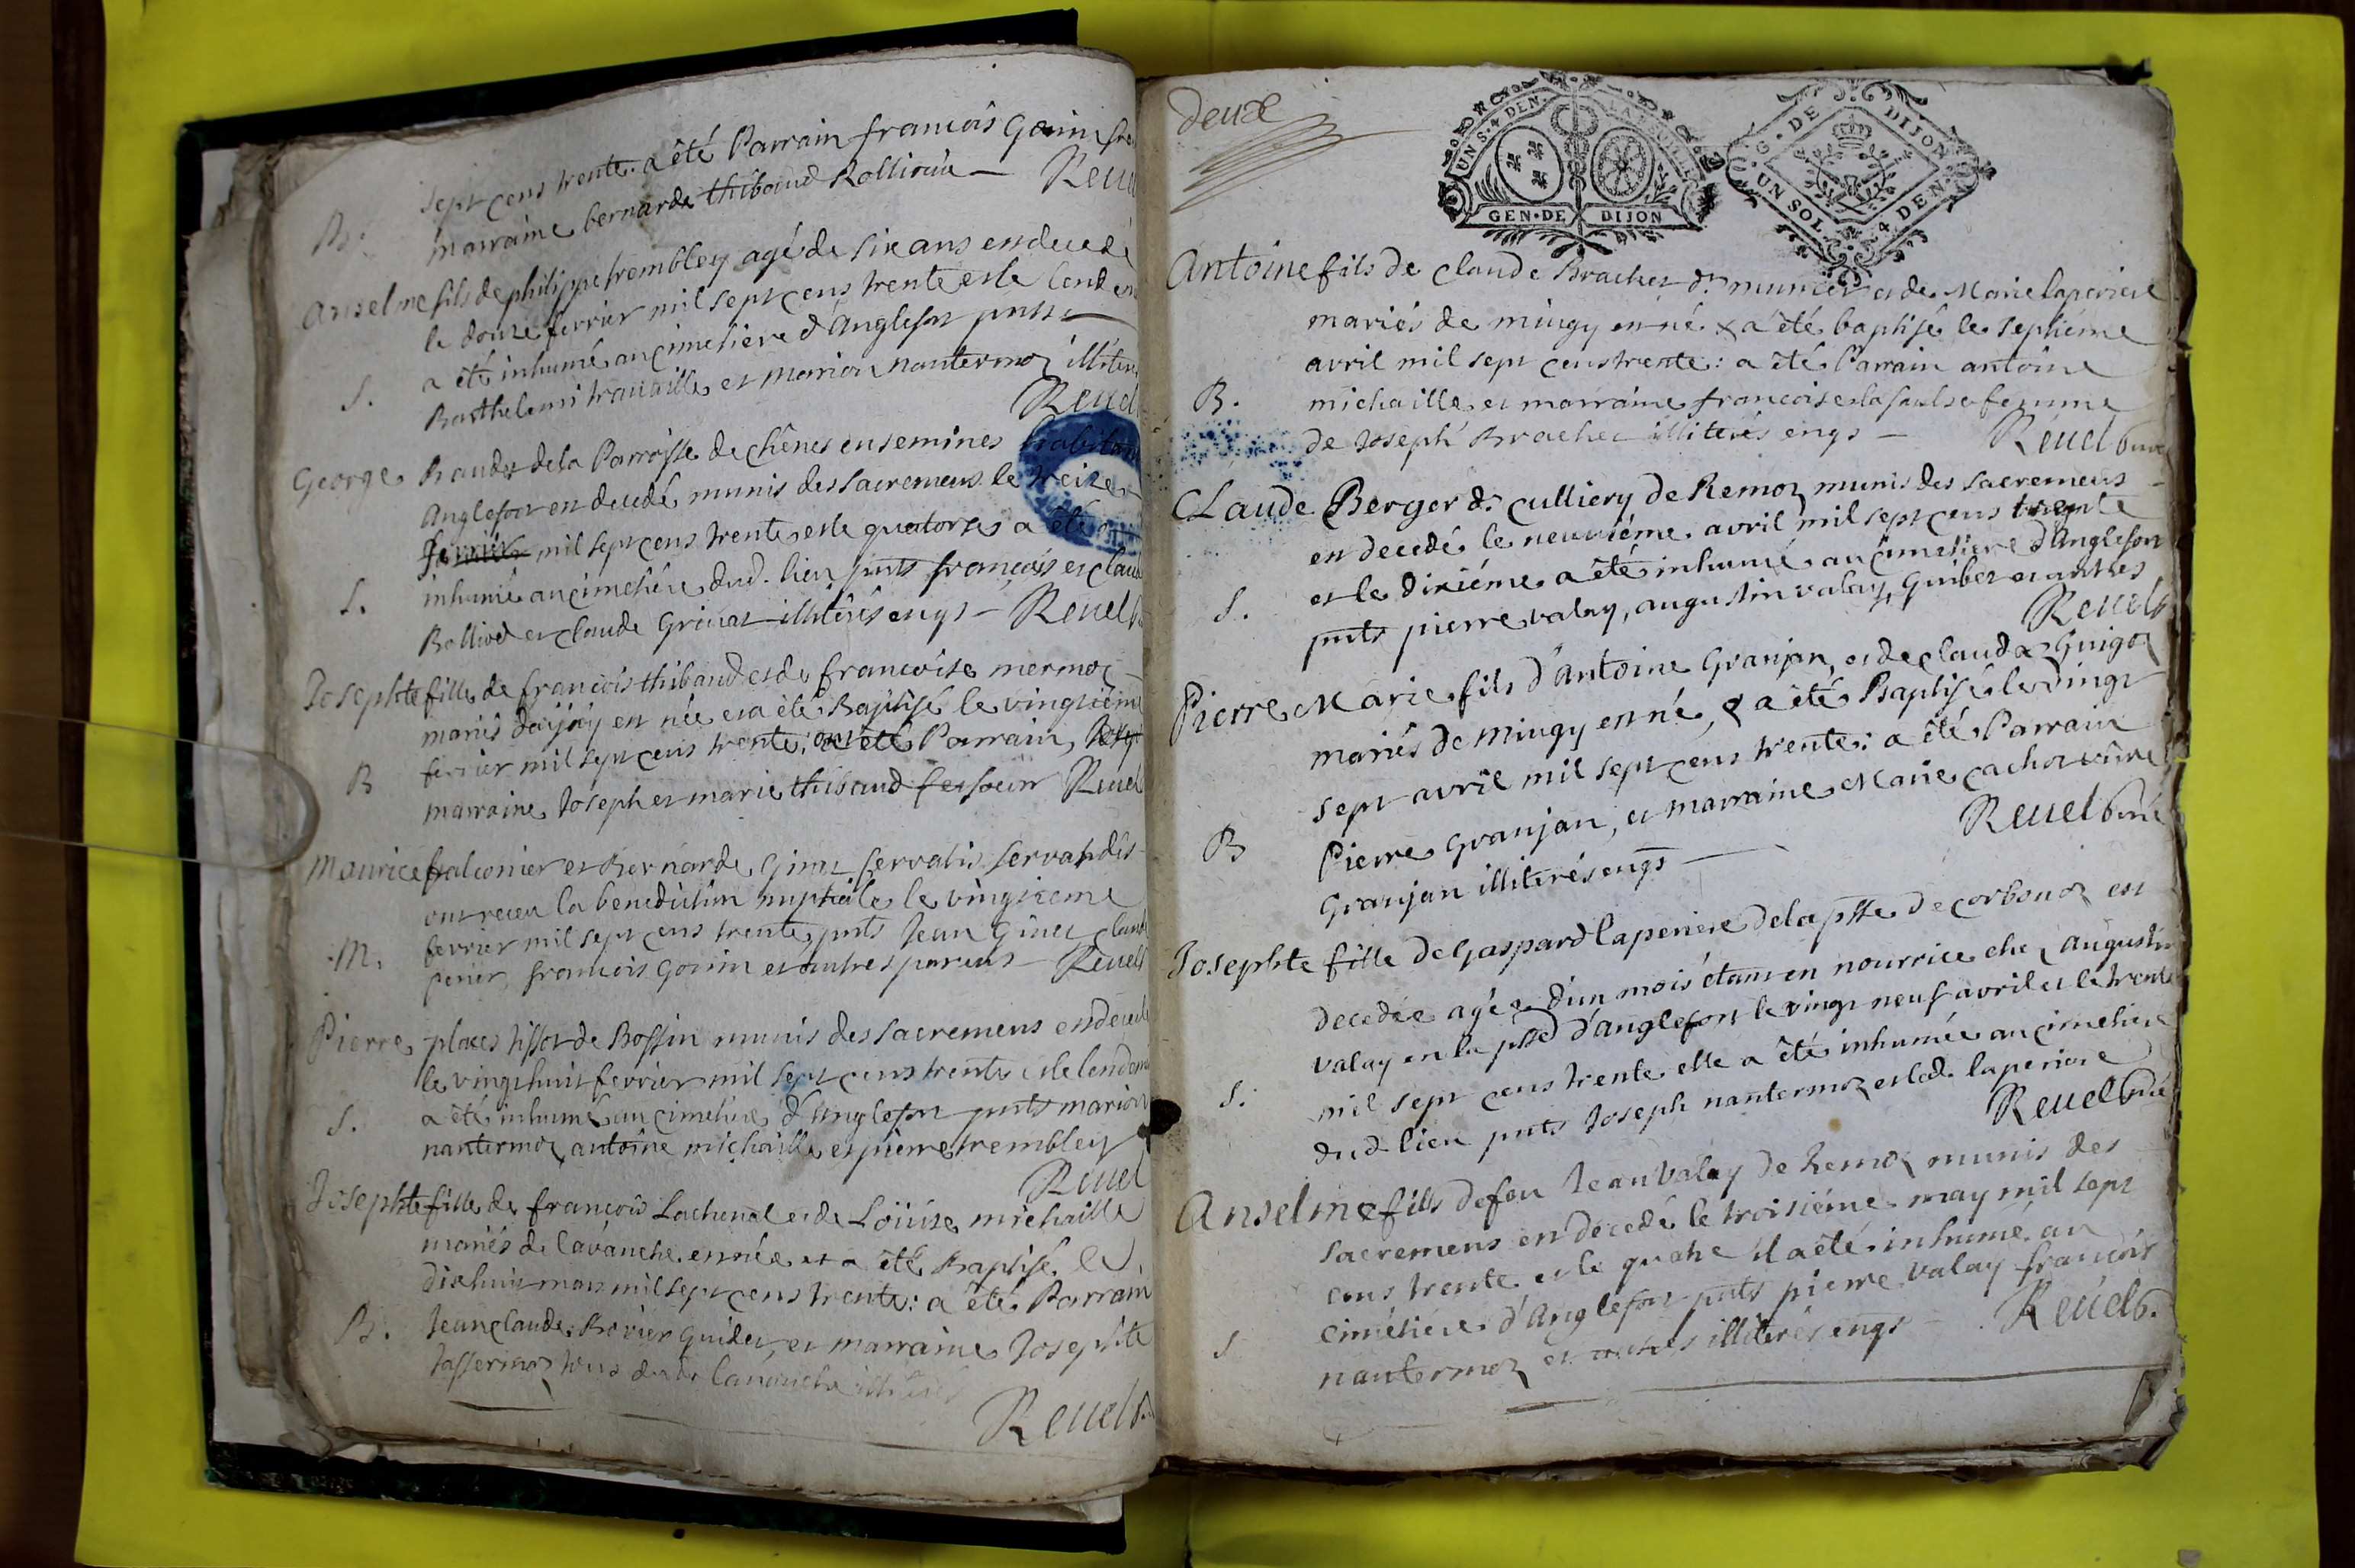 sept cens trente. a été Parrain francois Gonin
B. marraine bernarde thibaud Rollioud — Reuel
Anselme fils de philippe trembley agé de six ans en decedé
le douze ferrier mil sept cens trente et le lendem
S. a été inhumé au cimetiere d'Anglefort pnts
Barthelemi travaille et marion nantermoz illiter
Reuel
George Baudet de la Parroisse de chênes en semines habitant
Anglefort en decedé munis des sacremens le treize
ferrier mil sept cens trente et le quatorse a été
S. inhumé au cimetiére dud. lieu pnts francois et claude
Balliod et claude Grinat illiterés engs — Reuel
Josephte fille de francois thibaud et de francoise mermoz
mariés d'arjoy en née et a été Baptisé le vingtiéme
ferrier mil sept cens trente: a été Parrain,
B marraine Joseph et marie thibaud fr et soeur Reuel
Maurice falconier et Bernarde Ginet servatis servandis
ont receu la benediction nuptiale le vingtieme
M. ferrier mil sept cens trente, pnts Jean Ginet claude
perier, francois Gonin et autres parens — Reuel
Pierre places tissot de Bossin munis des sacremens en decedé
le vingt huit ferrier mil sept cens trente et le lendem
S. a été inhumé au cimetiere d'Anglefort pnts marion
nantermoz, antoine michaille et pierre trembley
Reuel
Josephte fille de francois Lachenal et de Loüise michaille
mariés de lavanche en née et a été Baptisé le
dixhuit mars mil sept cens trente: a été Parrain
B. Jean claude Bovier Guidet, et marraine Josephte
Jassermoz tous dud. lavanche illiterés
Reuel
deux
UN S. 4 DEN. LA FEUILLE
GEN. DE DIJON
G. DE DIJON
UN SOL. 4 DEN.
Antoine fils de claude Brachet dt munier et de Marie laperiere
mariés de mingy en né & a été baptisé le septiéme
avril mil sept cens trente: a été Parrain antoine
B. michaille et marraine francoise la saulse femme
de Joseph Brachet illiterés engs — Reuel curé
Claude Berger dt Culliery de Remoz munis des sacremens
en decedé le neuviéme avril mil sept cens trente
et le dixiéme a été inhumé au cimetiere d'Anglefort
S. pnts pierre valay, augustin valay, Guibet et autres
Reuel
Pierre Marie fils d'Antoine Granjan, et de claudaz Guigoz
mariés de Mingy en né, & a été Baptisé le vingt
sept avril mil sept cens trente: a été Parrain
B Pierre Granjan, et marraine Marie cachot vëuve
Granjan illiterés engs — Reuel curé
Josephte fille de Gaspard laperiere de la psse de corbonoz est
decedée agée d'un mois étant en nourrice chez Augustin
valay en la psse d'anglefort le vingt neuf avril et le trente
S. mil sept cens trente elle a été inhumée au cimetiere
dud lieu pnts Joseph nantermoz et led. laperiere
Reuel curé
Anselme fils de feu Jean valay de Remoz munis des
sacremens en decedé le troisiéme may mil sept
cens trente et le quatre il a été inhumé au
cimetiere d'Anglefort pnts pierre valay francois
S nantermoz et autres illiterés engs — Reuel c.